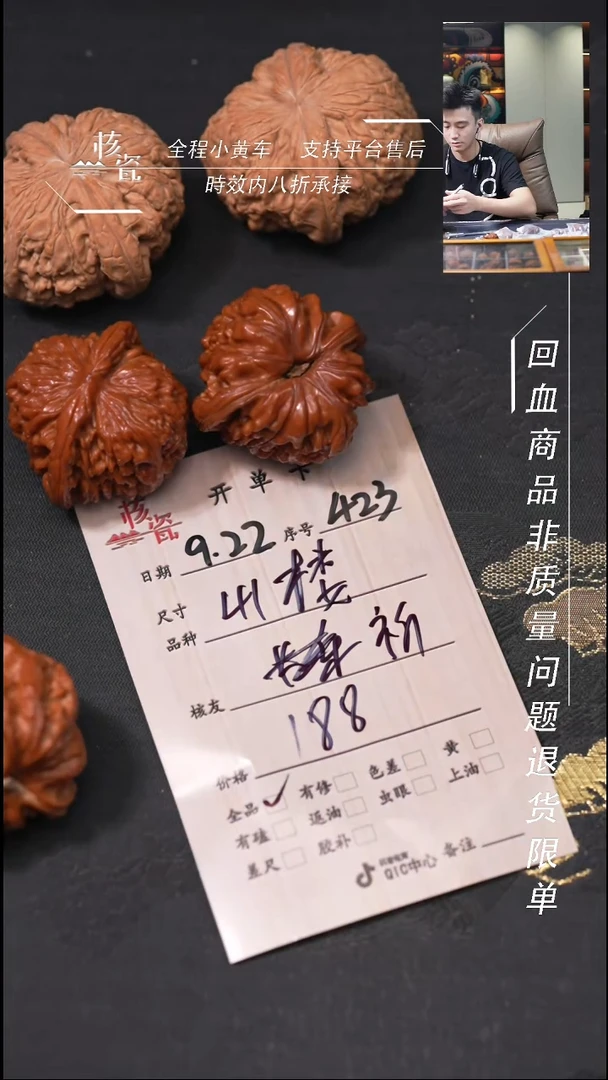 核瓷
全程小黄车 支持平台售后
時效内八折承接
回血商品非质量问题退货限单
开单卡
核瓷
日期 9.22 序号 423
尺寸 41 楼
品种
核友
188
价格
全品 ✓ 有修 色差 黄
有磕 返油 虫眼 上油
差尺 胶补
抖音电商
QIC中心 备注